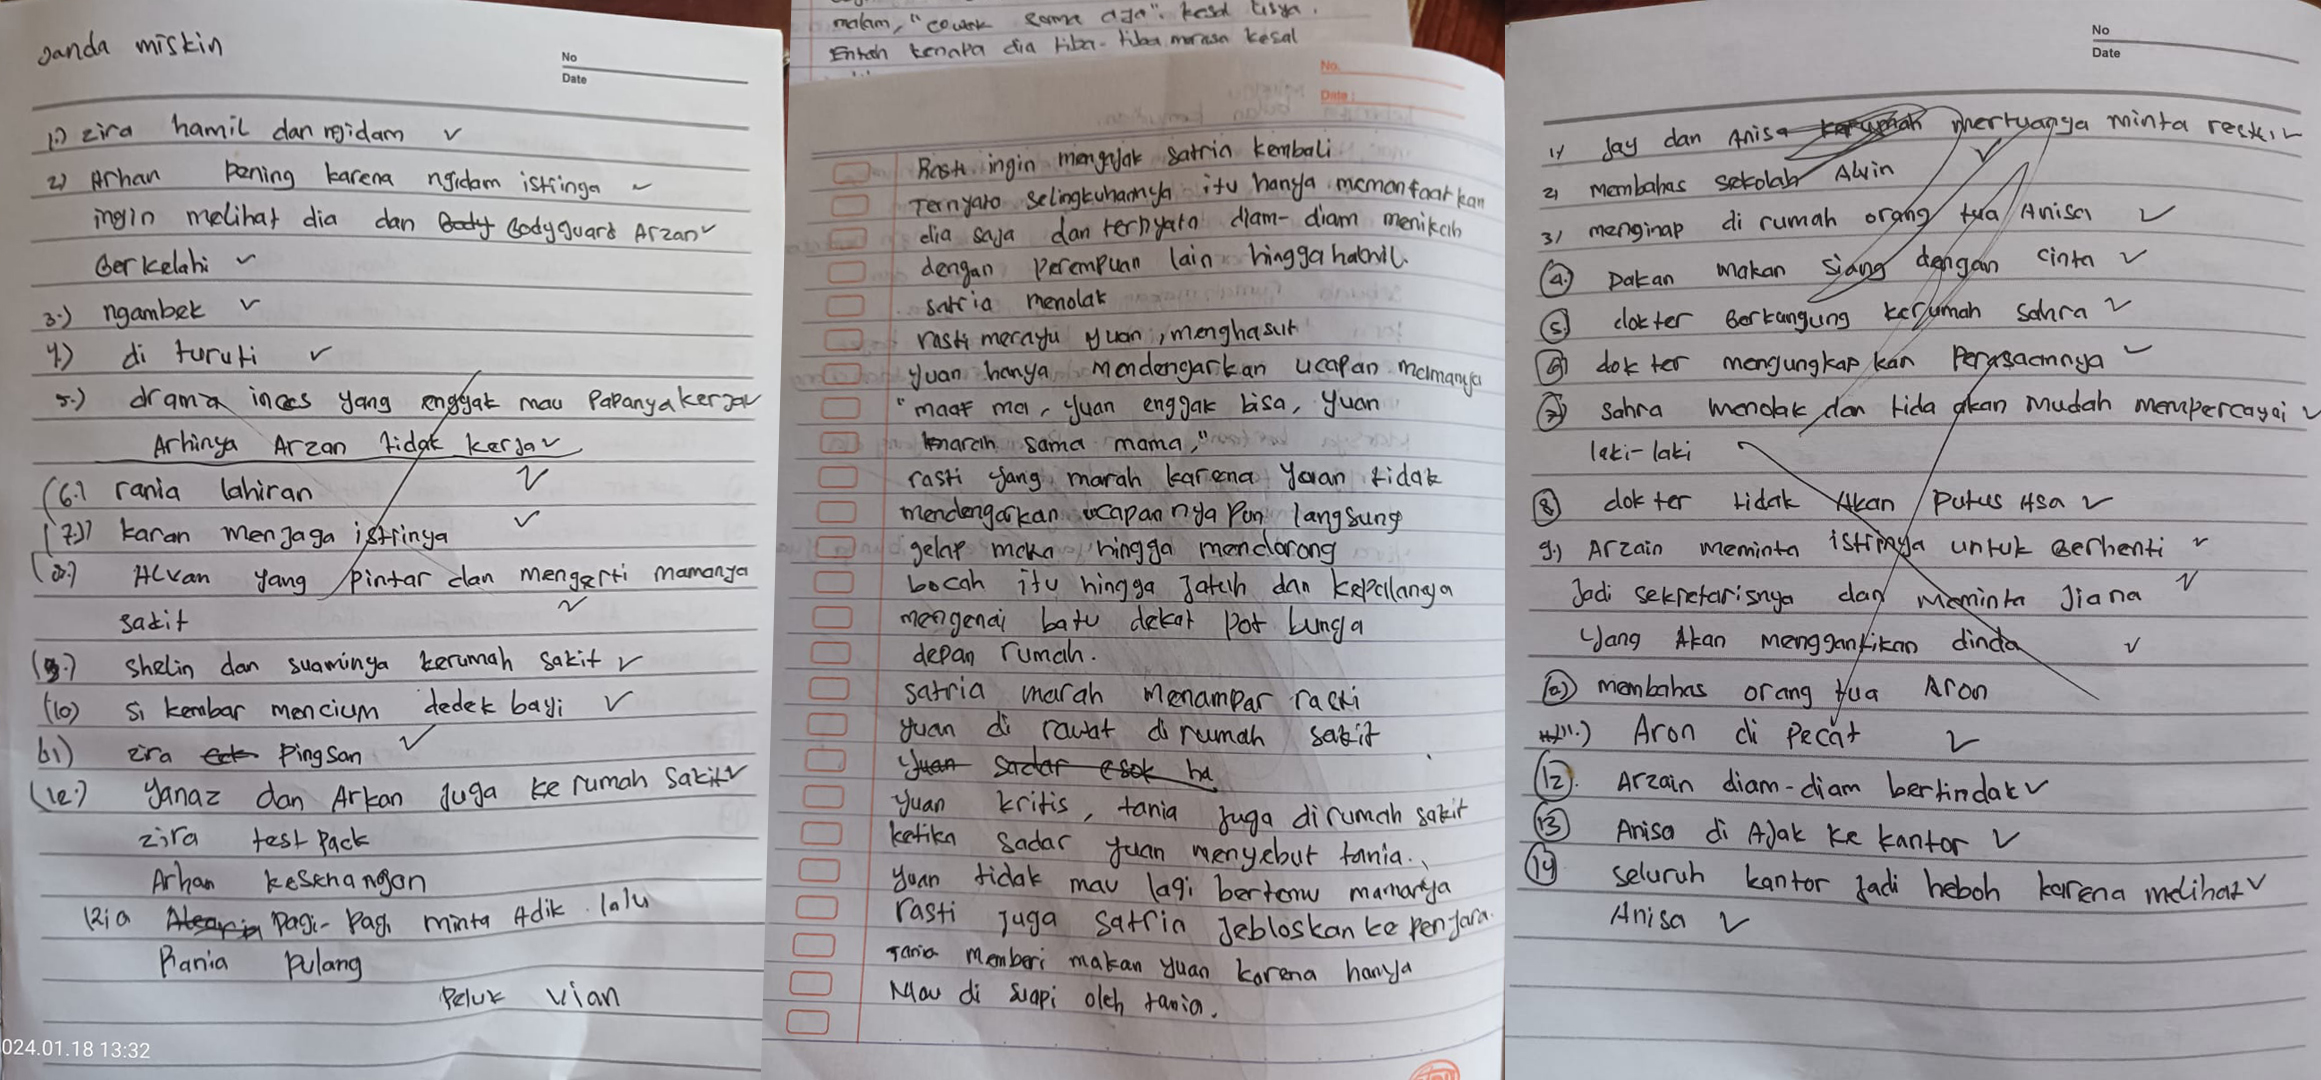 Janda miskin
No
Date
1.) zira hamil dan ngidam ✓
2) Arhan pening karena ngidam istringa ✓
ingin melihat dia dan Body Bodyguard Arzan ✓
Berkelahi ✓
3.) ngambek ✓
4.) di turuti ✓
5.) drama inces yang enggak mau Papanya kerja ✓
Arhinya Arzan tidak kerja ✓
(6.) rania lahiran ✓
(7.) karan menjaga istrinya ✓
(8.) Alvan yang pintar dan mengerti mamanya
sakit ✓
(9.) shelin dan suaminya kerumah sakit ✓
(10) si kembar mencium dedek bayi ✓
11) zira pingsan ✓
(12.) yanaz dan Arkan juga ke rumah sakit ✓
zira test pack
Arhan kesenangan
pagi-pagi minta Adik lalu
Rania pulang
Peluk vian
024.01.18 13:32
malam, "cowok sama aja". kesal tisya.
Entah kenapa dia tiba-tiba merasa kesal
No.
Date:
Rasti ingin mengajak satria kembali
Ternyata selingkuhannya itu hanya memanfaatkan
dia saja dan ternyata diam-diam menikah
dengan perempuan lain hingga hamil.
satria menolak
rasti merayu yuan, menghasut
yuan hanya mendengarkan ucapan mamanya
"maaf ma, yuan enggak bisa, yuan
marah sama mama,"
rasti yang marah karena yuan tidak
mendengarkan ucapannya pun langsung
gelap mata hingga mendorong
bocah itu hingga jatuh dan kepalanya
mengenai batu dekat pot bunga
depan rumah.
satria marah menampar rasti
yuan di rawat di rumah sakit
yuan sadar esok ha
yuan kritis, tania juga dirumah sakit
ketika sadar yuan menyebut tania.
yuan tidak mau lagi bertemu mamanya
rasti juga satria jebloskan ke penjara.
Tania memberi makan yuan karena hanya
Mau di suapi oleh tania.
No
Date
1) Jay dan Anisa kerumah mertuanya minta restu ✓
2) membahas sekolah Alvin ✓
3) menginap di rumah orang tua Anisa ✓
(4.) Dakan makan siang dengan cinta ✓
(5.) dokter berkunjung kerumah sahra ✓
(6) dokter mengungkapkan perasaannya ✓
(7) sahra menolak dan tida akan mudah mempercayai ✓
laki-laki
(8) dokter tidak Akan putus Asa ✓
9.) Arzain meminta istrinya untuk Berhenti ✓
Jadi sekretarisnya dan meminta Jiana ✓
yang Akan menggantikan dinda ✓
membahas orang tua Aron
11.) Aron di pecat ✓
(12). Arzain diam-diam bertindak ✓
(13) Anisa di Ajak ke kantor ✓
(14) seluruh kantor jadi heboh karena melihat ✓
Anisa ✓